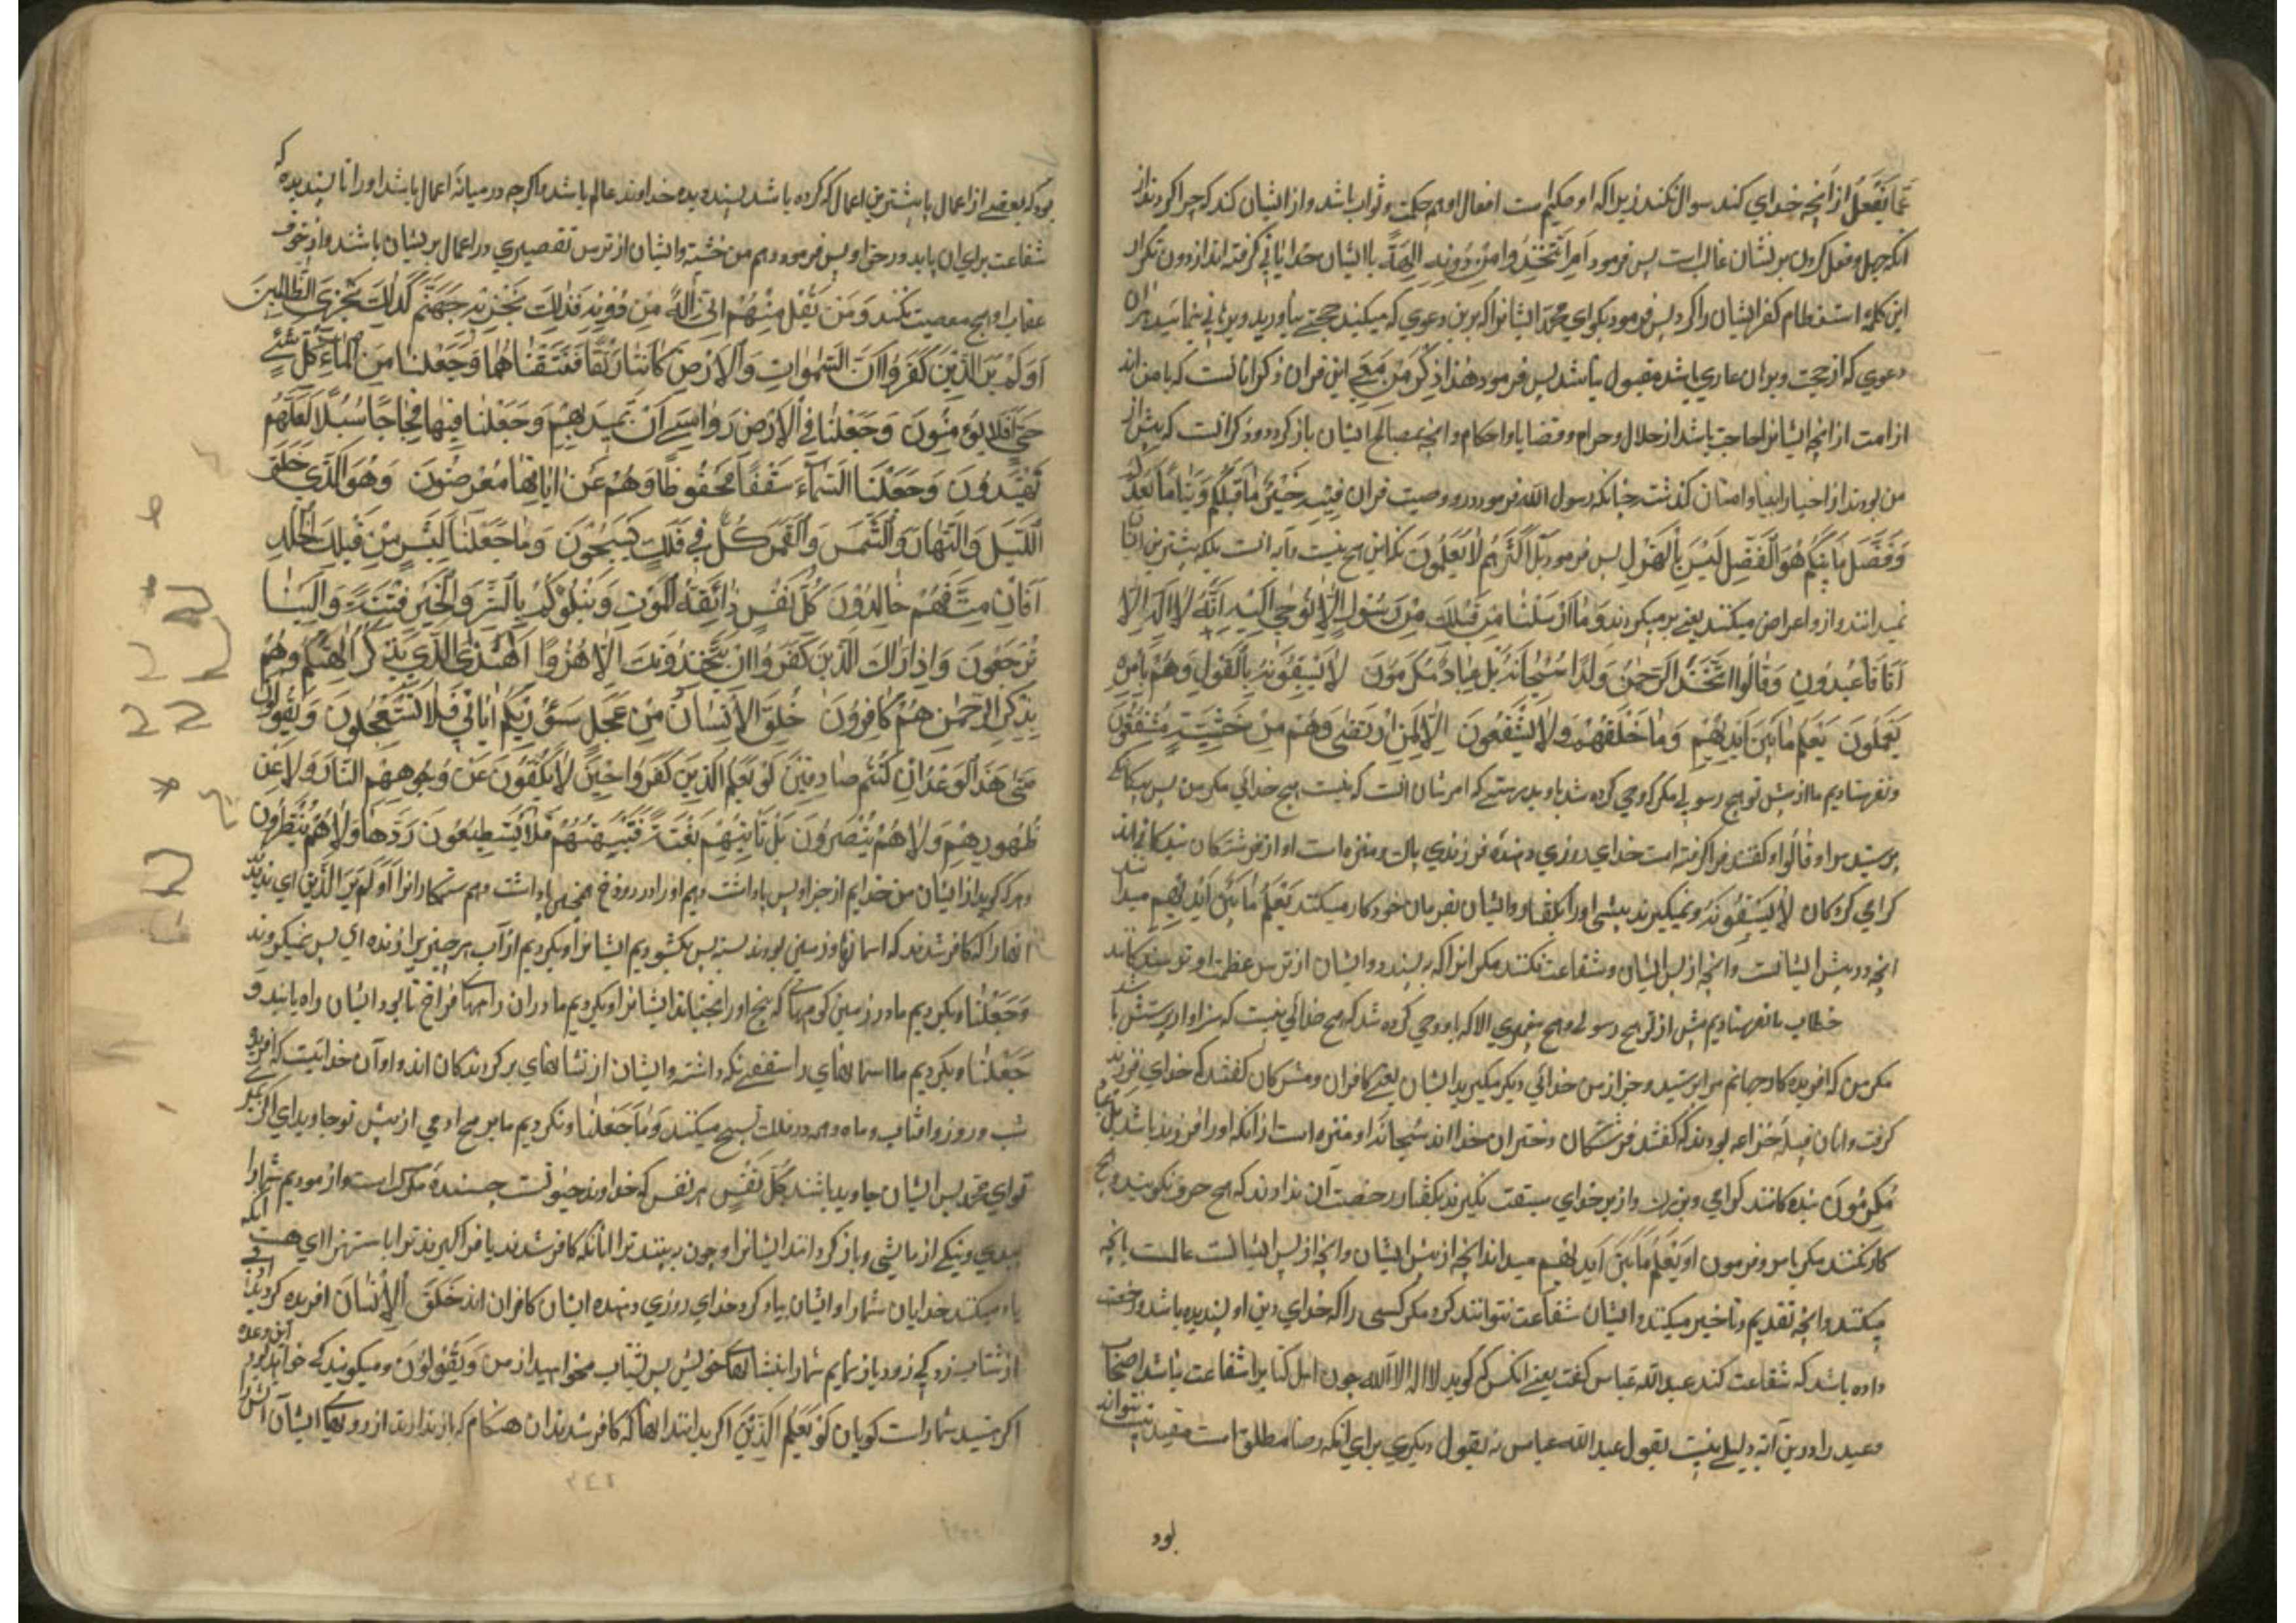 عَمَّا يَفْعَلُ از آنچه خداي كند سوال نكنند زيرا كه او حكيم است افعال او هم حكمت و ثواب باشد و از ايشان كند كه چرا كرديد از
انكه جهل و فعل كردن بر ايشان غالب است پس فرمود اَمِ اتَّخَذُوا مِنْ دُونِهِ الِهَةً با ايشان خدايانى گرفته اند از دون تكرار
اين كلمه استفطام كفر ايشان را كرد پس فرمود بكو اي محمد ايشانرا كه برين دعوي كه ميكنيد حجتى بياوريد و برهانى بنمائيد هران
دعوي كه از حجت و برهان عاري باشد مقبول نباشد پس فرمود هٰذا ذِكْرُ مَنْ مَعِيَ اين قران ذكر انانست كه با من اند
از امت از انچه ايشانرا حاجت باشد از حلال و حرام و قضايا و احكام و انچه بمصالح ايشان باز كردد و ذكر انست كه پيش از
من بودند از اخبار انبيا و امتان كذشته چنانكه رسول الله فرمود در وصيت قران فِيْهِ خَبَرُ مَا قَبْلَكُمْ وَ نَبَأُ مَا بَعْدَكُمْ
وَ فَصْلُ مَا بَيْنَكُمْ هُوَ الْفَصْلُ لَيْسَ بِالْهَزْلِ پس فرمود بَلْ اَكْثَرُهُمْ لا يَعْلَمُونَ نكه اين هيچ نيست و آيه انست بلكه بيشترين ايشان
نميدانند و از و اعراض ميكنند يعنى برميكردند وَ مٰا اَرْسَلْنٰا مِنْ قَبْلِكَ مِنْ رَسُولٍ اِلّٰا نُوحِي اِلَيْهِ اَنَّهُ لٰا اِلٰهَ اِلّٰا
اَنَا فَاعْبُدُونِ وَ قٰالُوا اتَّخَذَ الرَّحْمٰنُ وَلَدًا سُبْحٰانَهُ بَلْ عِبٰادٌ مُكْرَمُونَ لٰا يَسْبِقُونَهُ بِالْقَوْلِ وَ هُمْ بِاَمْرِهِ
يَعْمَلُونَ يَعْلَمُ مٰا بَيْنَ اَيْدِيهِمْ وَ مٰا خَلْفَهُمْ وَ لٰا يَشْفَعُونَ اِلّٰا لِمَنِ ارْتَضٰى وَ هُمْ مِنْ خَشْيَتِهِ مُشْفِقُونَ
و نفرستاديم ما از پيش تو هيچ رسولى مكر كه وحي كرده شد باو بدرستى كه امر شان انست كه نيست هيچ خدائي مكر من پس بيكانكى
پرستيد مرا و قٰالُوا و كفتند فرا كرفته است خداي روزي دهنده فرزندي پاك و منزه است او از فرشتكان بندكانى اند
كرامي كركان لٰا يَسْبِقُونَهُ و نميكيرند پيشى او را بكفتار و ايشان بفرمان خود كار ميكنند يَعْلَمُ مٰا بَيْنَ اَيْدِيهِمْ ميداند
انچه در پيش ايشانست و انچه از پس ايشان و شفاعت نكنند مكر انرا كه پسندد و ايشان از ترس عظمت او ترسندكانند
خطاب ما نفرستاديم پيش از تو هيچ رسولى و هيچ پيغمبري الا كه باو وحي كرده شد كه هيچ خدائي نيست كه سزاوار پرستش باشد
مكر من كه افريده كار جهانم مرا پرستيد و جز از من خدائي ديكر مكيريد ايشان يعنى كافران و مشركان كفتند كه خداي فرزند
كرفت و انان قبيلهٔ خزاعه بودند كه كفتند فرشتكان دختران خدا اند سُبْحٰانَهُ او منزه است از انكه او را فرزند باشد بَلْ عِبٰادٌ
مُكْرَمُونَ بنده كانند كرامي و بزرك و از بر خداي سبقت نكيرند بكفتار رخصت آن ندارند كه هيچ حرف نكويند و هيچ
كار نكنند مكر بامر و فرمون او يَعْلَمُ مٰا بَيْنَ اَيْدِيهِمْ ميداند انچه از پيش ايشان و انچه از پس ايشانست عالمست بانچه
ميكنند و انچه تقديم و تاخير ميكنند و ايشان شفاعت نتوانند كرد مكر كسى را كه خداي دين او پسنديده باشد و رخصت
داده باشد كه شفاعت كند عبد الله عباس كفت يعنى انكس كه كويد لا اله الا الله چون اهل كتاب را شفاعت نباشد اصحاب
وعيد را درين آيه دليلى نيست بقول عبد الله عباس نه بقول ديكري براي انكه رضا مطلق است مقيد نيست نتواند
بود
بود كه بعضى از اعمال يا بيشترين اعمال كه كرده باشد پسنديده خداوند عالم باشد و اكر چه در ميانه اعمال باشد او را نا پسنديده كه
شفاعت براي ان يابد و در حق او پس فرمود و هم من خشيته و ايشان از ترس تقصيري در اعمال برسان باشند و از خوف
عقاب او هيچ معصيت نكنند وَ مَنْ يَقُلْ مِنْهُمْ اِنِّي اِلٰهٌ مِنْ دُونِهِ فَذٰلِكَ نَجْزِيهِ جَهَنَّمَ كَذٰلِكَ نَجْزِي الظّٰالِمِينَ
اَوَ لَمْ يَرَ الَّذِينَ كَفَرُوا اَنَّ السَّمٰوٰاتِ وَ الْاَرْضَ كٰانَتٰا رَتْقًا فَفَتَقْنٰاهُمٰا وَ جَعَلْنٰا مِنَ الْمٰاءِ كُلَّ شَيْءٍ
حَيٍّ اَفَلٰا يُؤْمِنُونَ وَ جَعَلْنٰا فِي الْاَرْضِ رَوٰاسِيَ اَنْ تَمِيدَ بِهِمْ وَ جَعَلْنٰا فِيهٰا فِجٰاجًا سُبُلًا لَعَلَّهُمْ
يَهْتَدُونَ وَ جَعَلْنَا السَّمٰاءَ سَقْفًا مَحْفُوظًا وَ هُمْ عَنْ اٰيٰاتِهٰا مُعْرِضُونَ وَ هُوَ الَّذِي خَلَقَ
اللَّيْلَ وَ النَّهٰارَ وَ الشَّمْسَ وَ الْقَمَرَ كُلٌّ فِي فَلَكٍ يَسْبَحُونَ وَ مٰا جَعَلْنٰا لِبَشَرٍ مِنْ قَبْلِكَ الْخُلْدَ
اَفَاِنْ مِتَّ فَهُمْ خٰالِدُونَ كُلُّ نَفْسٍ ذٰائِقَةُ الْمَوْتِ وَ نَبْلُوكُمْ بِالشَّرِّ وَ الْخَيْرِ فِتْنَةً وَ اِلَيْنٰا
تُرْجَعُونَ وَ اِذٰا رَاٰكَ الَّذِينَ كَفَرُوا اِنْ يَتَّخِذُونَكَ اِلّٰا هُزُوًا اَهٰذَا الَّذِي يَذْكُرُ اٰلِهَتَكُمْ وَ هُمْ
بِذِكْرِ الرَّحْمٰنِ هُمْ كٰافِرُونَ خُلِقَ الْاِنْسٰانُ مِنْ عَجَلٍ سَاُرِيكُمْ اٰيٰاتِي فَلٰا تَسْتَعْجِلُونَ وَ يَقُولُونَ
مَتٰى هٰذَا الْوَعْدُ اِنْ كُنْتُمْ صٰادِقِينَ لَوْ يَعْلَمُ الَّذِينَ كَفَرُوا حِينَ لٰا يَكُفُّونَ عَنْ وُجُوهِهِمُ النّٰارَ وَ لٰا عَنْ
ظُهُورِهِمْ وَ لٰا هُمْ يُنْصَرُونَ بَلْ تَاْتِيهِمْ بَغْتَةً فَتَبْهَتُهُمْ فَلٰا يَسْتَطِيعُونَ رَدَّهٰا وَ لٰا هُمْ يُنْظَرُونَ
و هر كه كويد از ايشان من خدايم از جز او پس پاداشت دهيم او را در دوزخ همچنين پاداشت دهيم ستمكارانرا اَوَ لَمْ يَرَ الَّذِينَ اي نديدند
انها را كه كافر شدند كه اسمانها و زمين بودند بسته پس بكشوديم ايشانرا و بكرديم از آب هر چيزيرا زنده اي پس نميكروند
وَ جَعَلْنٰا و بكرديم ما در زمين كوهها كه بيخ اور بجنباند ايشانرا و بكرديم ما در ان راههاى فراخ تا بود ايشان راه يابند و
جَعَلْنٰا و بكرديم ما اسمانهاي را سقفى نكه داشته و ايشان از نشانهاي بر كردندكان اند و او آن خدائيست كه افريد
شب و روز و افتاب و ماه و همه در فلك تسبيح ميكنند وَ مٰا جَعَلْنٰا و نكرديم ما بر هيچ ادمي از پيش تو جاويداي اكر بميري
تو اي محمد پس ايشان جاويد باشند كُلُّ نَفْسٍ هر نفس كه خداوند حيوتست چشنده مركست و ازموديم شما را
ببدي و نيكى ازمايشى و باز كردانند ايشانرا و چون ببينند ترا انانكه كافر شدند يا فرا كيرند ترا با ستهزا اي هست انكه
ياد ميكند خدايان شما را و ايشان بياد كرد خداي روزي دهنده ايشان كافران اند خَلَقَ الْاِنْسٰانَ افريده كرديم ادمى
از شتاب زدكى زود باز نمايم شما را نشانهاي خويش پس شتاب مخواهيد از من وَ يَقُولُونَ و ميكويند كى خواهد بود اين وعده
اكر هستيد شما راست كويان لَوْ يَعْلَمُ الَّذِينَ اكر بدانند انها كه كافر شدند ان هنكام كه باز ندارند از رويهاى ايشان آتش را